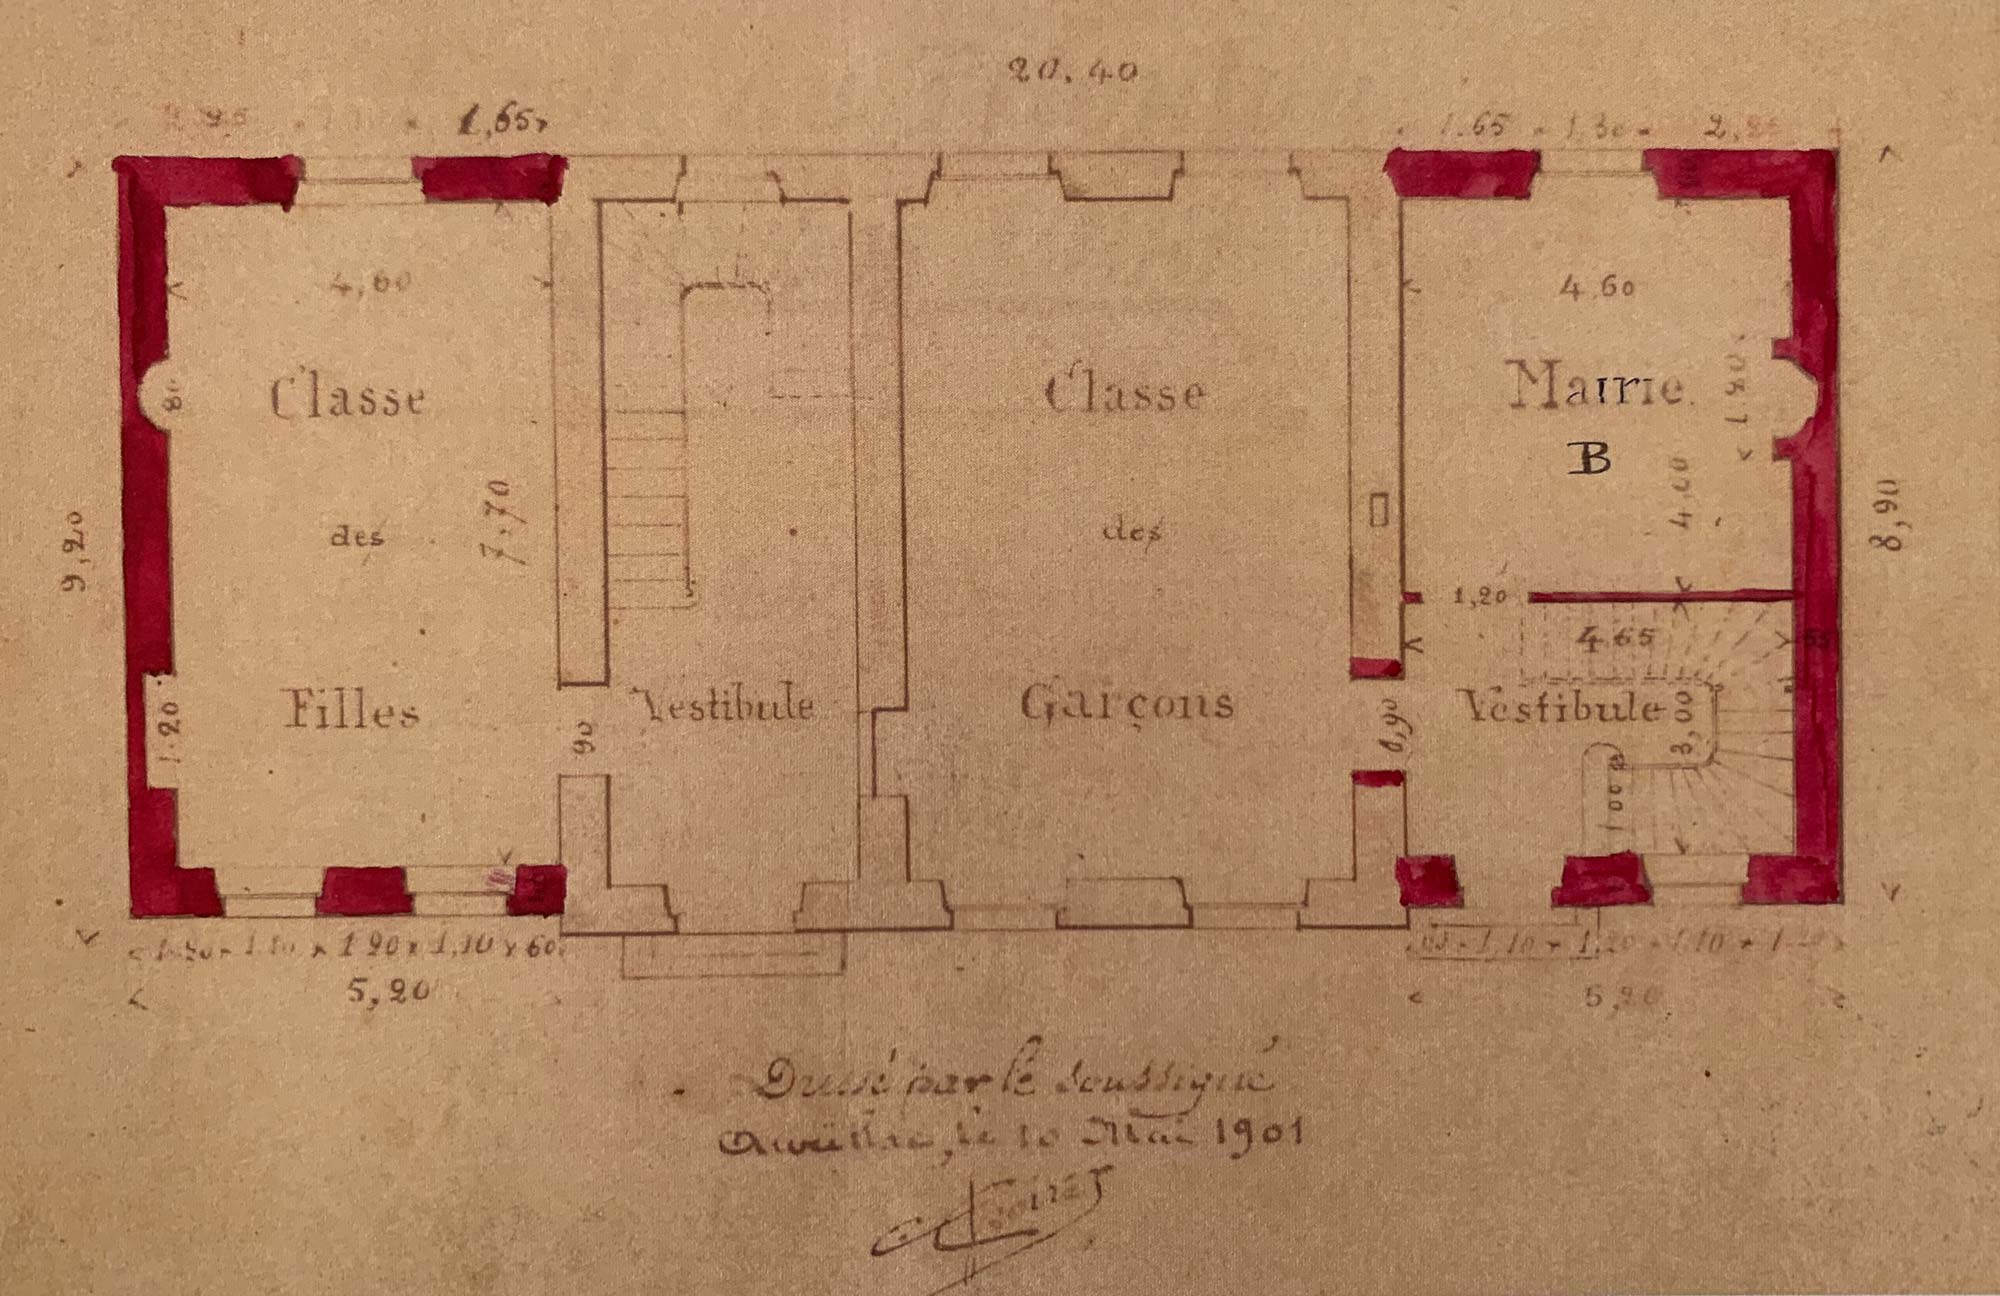 20.40
1,65
1.65 1.30 2,25
4,60
4.60
Classe
des
Filles
80
7,70
9,20
1.20
90
Vestibule
Classe
des
Garçons
0,90
Mairie
B
1.80
4,00
8,90
1,20
4 65
55
Vestibule
3,00
1,00
1.20 1.10 1 20 1,10 60
1,10 1.20 1,10
5,20
5,20
Dressé par le soussigné
le 10 Mai 1901